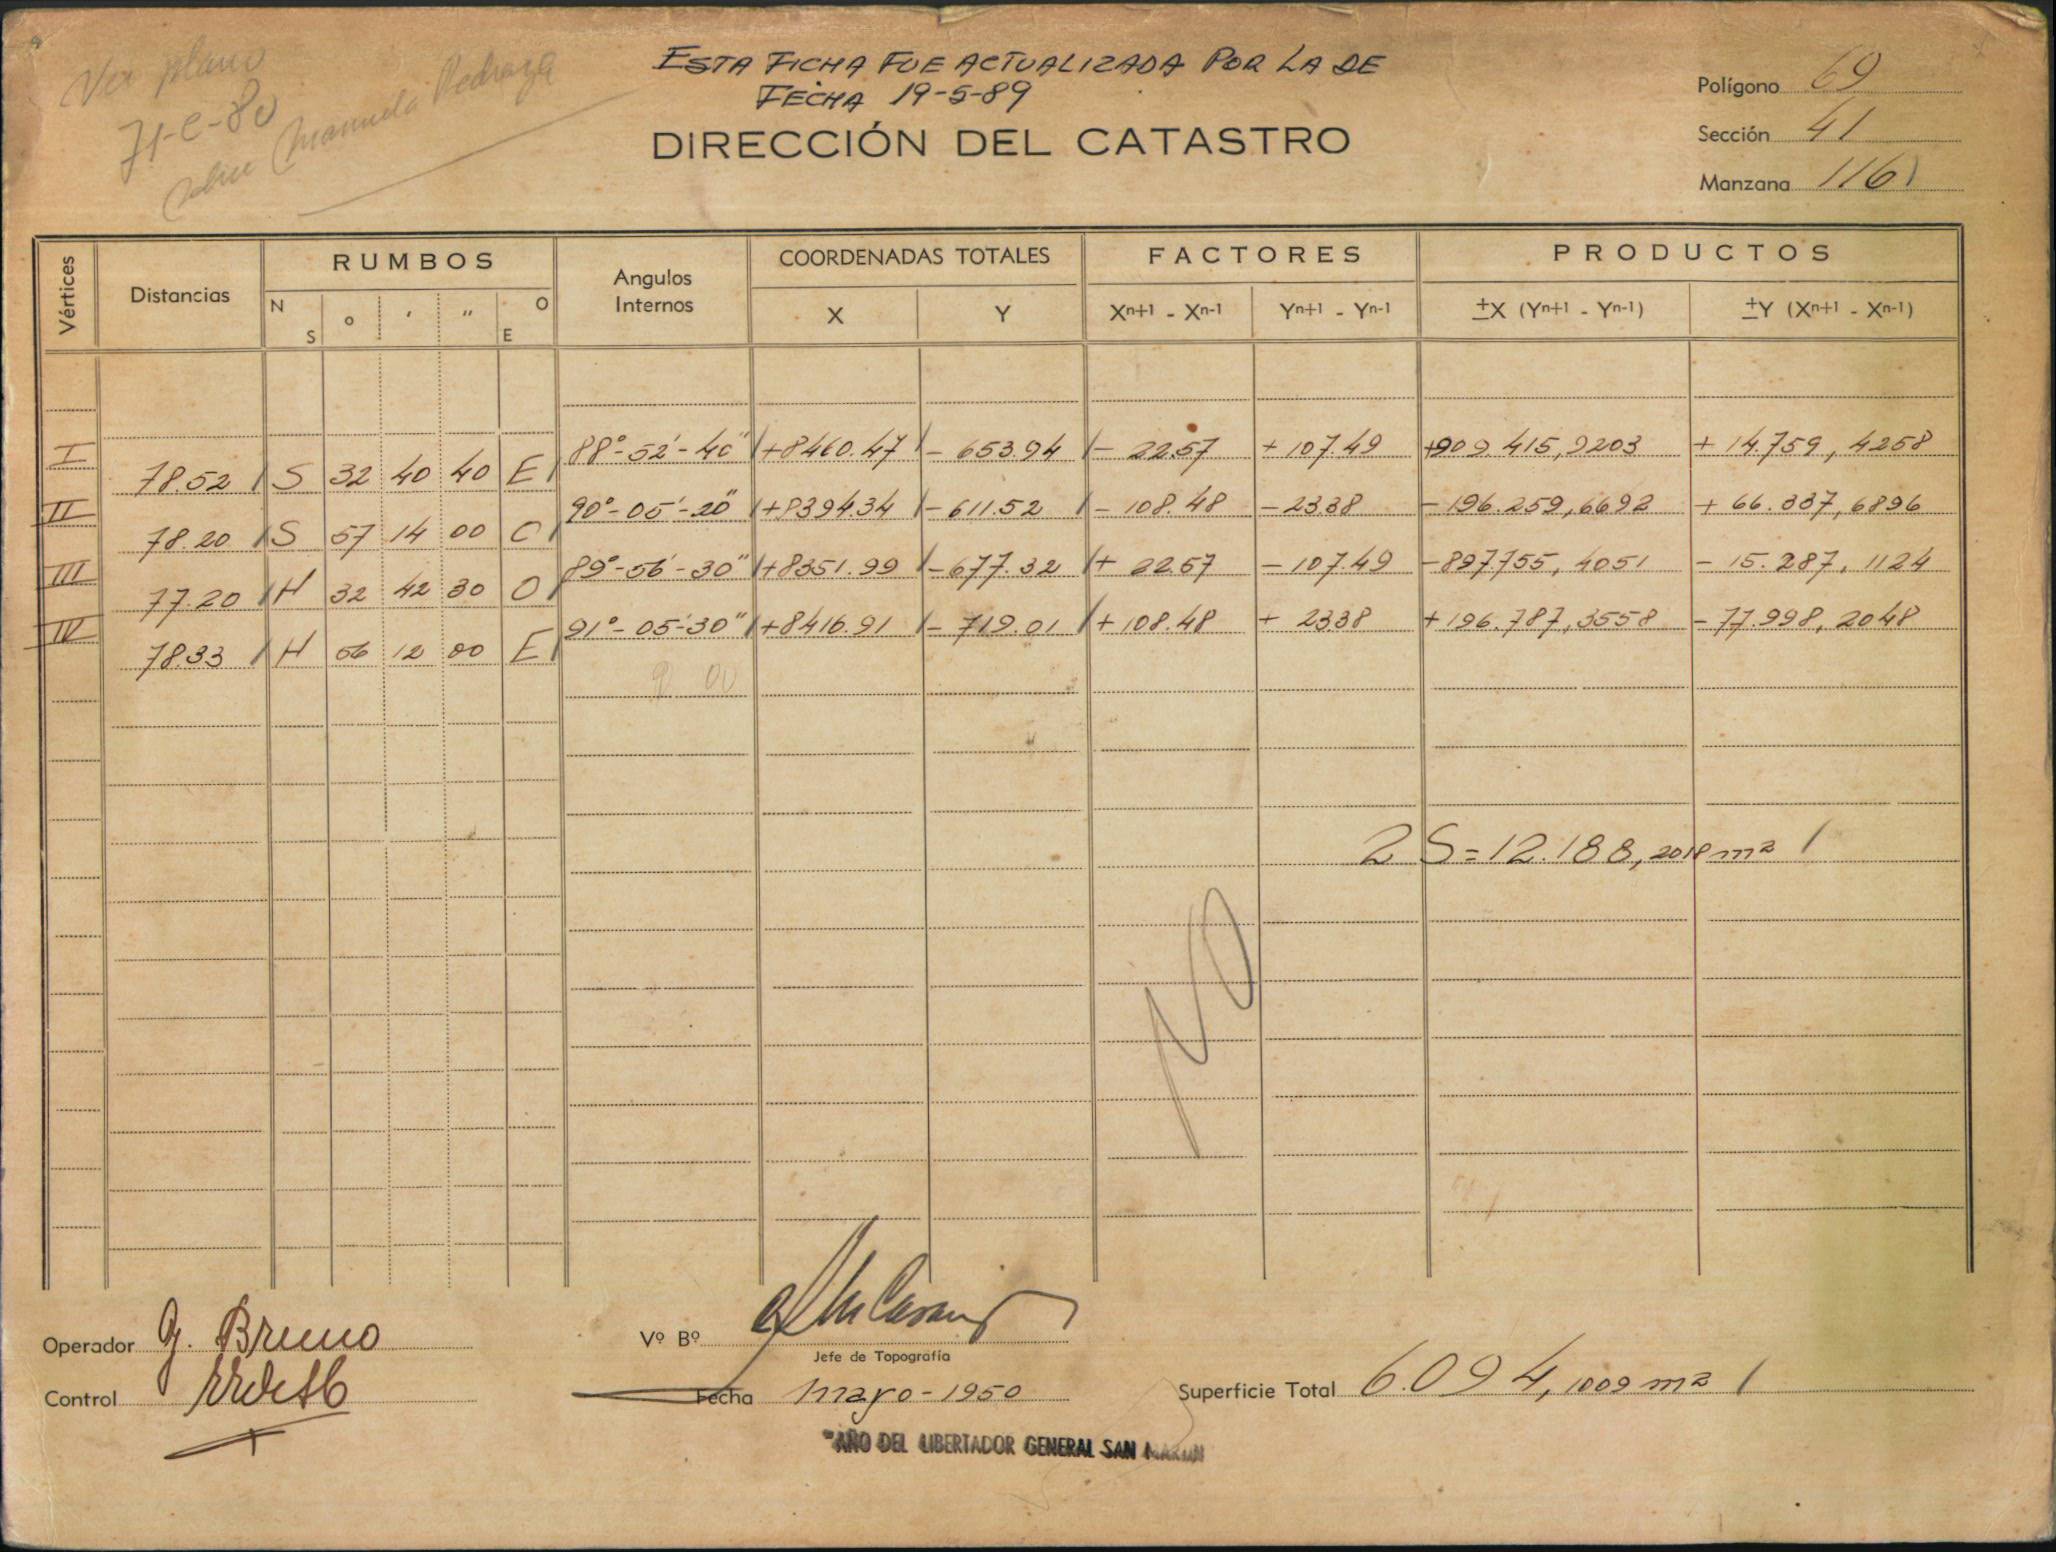 Ver plano
71-C-80
sobre Manuela Pedraza
ESTA FICHA FUE ACTUALIZADA POR LA DE
FECHA 19-5-89
DIRECCIÓN DEL CATASTRO
Polígono 69
Sección 41
Manzana 116
Vértices Distancias RUMBOS Angulos Internos COORDENADAS TOTALES FACTORES PRODUCTOS
N S ° ' " O E X Y Xn+1 - Xn-1 Yn+1 - Yn-1 ±X (Yn+1 - Yn-1) ±Y (Xn+1 - Xn-1)
I 88°-52'-40" +8460.47 - 653.94 - 22.57 + 107.49 +909.415,9203 + 14.759,4258
78.52 S 32 40 40 E
II 90°-05'-20" +8394.34 - 611.52 - 108.48 - 23.38 - 196.259,6692 + 66.337,6896
78.20 S 57 14 00 O
III 89°-56'-30" +8351.99 - 677.32 + 22.57 - 107.49 - 897.755,4051 - 15.287,1124
77.20 N 32 42 30 O
IV 91°-05'-30" +8416.91 - 719.01 + 108.48 + 23.38 + 196.787,3558 - 77.998,2048
78.33 N 56 12 00 E
2 S = 12.188,2018 m2
NO
Operador G. Bruno
Vº Bº
Jefe de Topografía
Control
Fecha mayo - 1950
Superficie Total 6.094,1009 m2
"AÑO DEL LIBERTADOR GENERAL SAN MARTIN